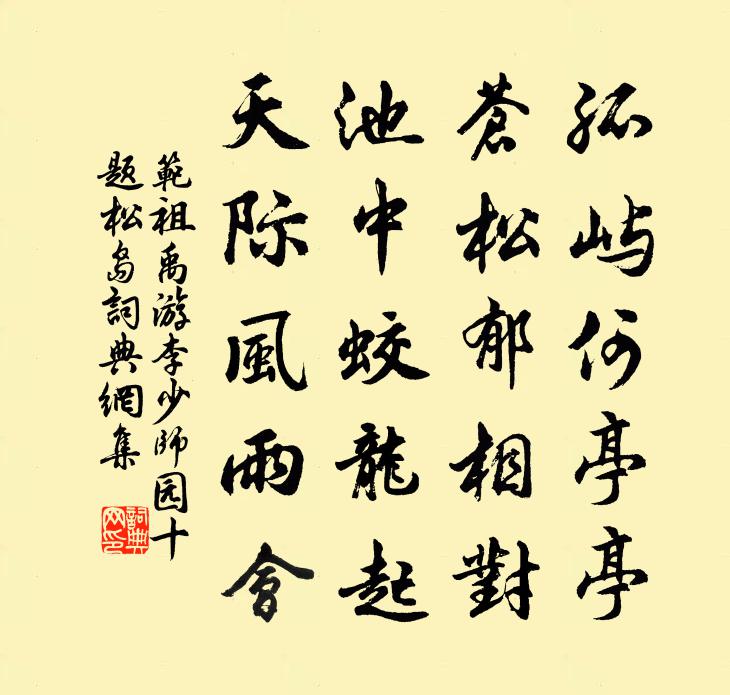 孤屿何亭亭
蒼松郁相對
池中蛟龍起
天际風雨會
範祖禹游李少師园十
题松岛詞典網集
詞典
网印